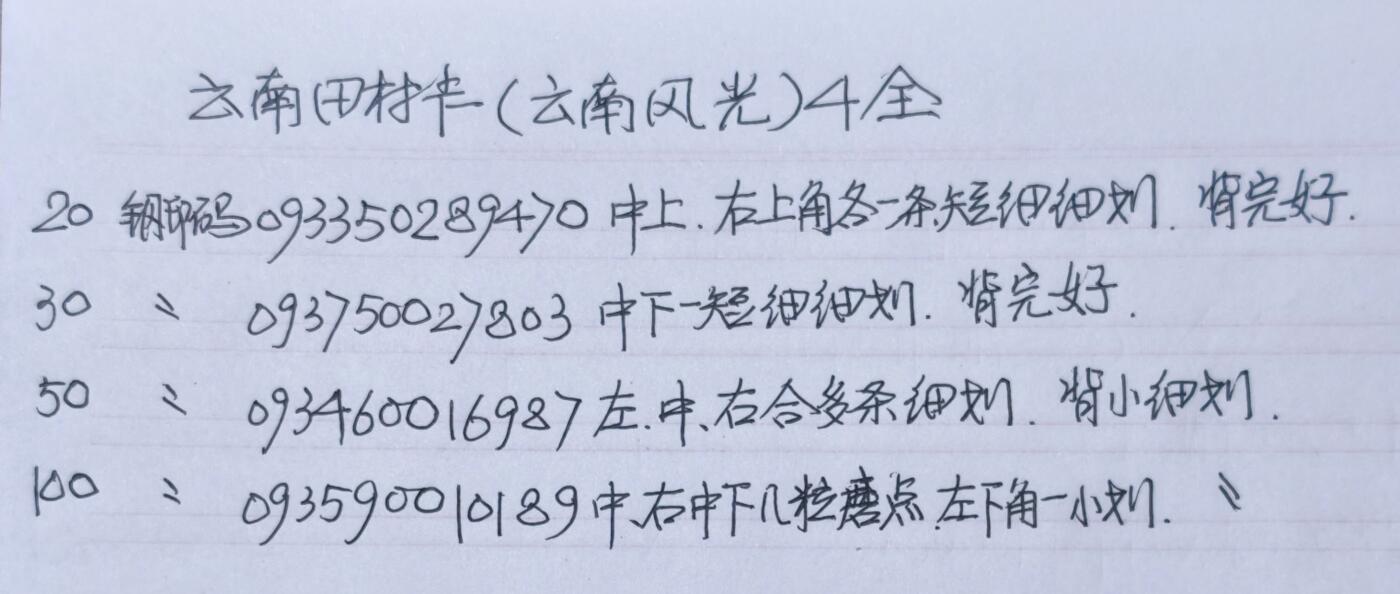 云南田村卡(云南风光)4全
20 钢印码093350289470 中上.右上角各一条短细细划.背完好.
30 〃 093750027803 中下一短细细划.背完好.
50 〃 093460016987 左.中、右合多条细划.背小细划.
100 〃 093590010189 中、右中下几粒磨点.左下角一小划.〃